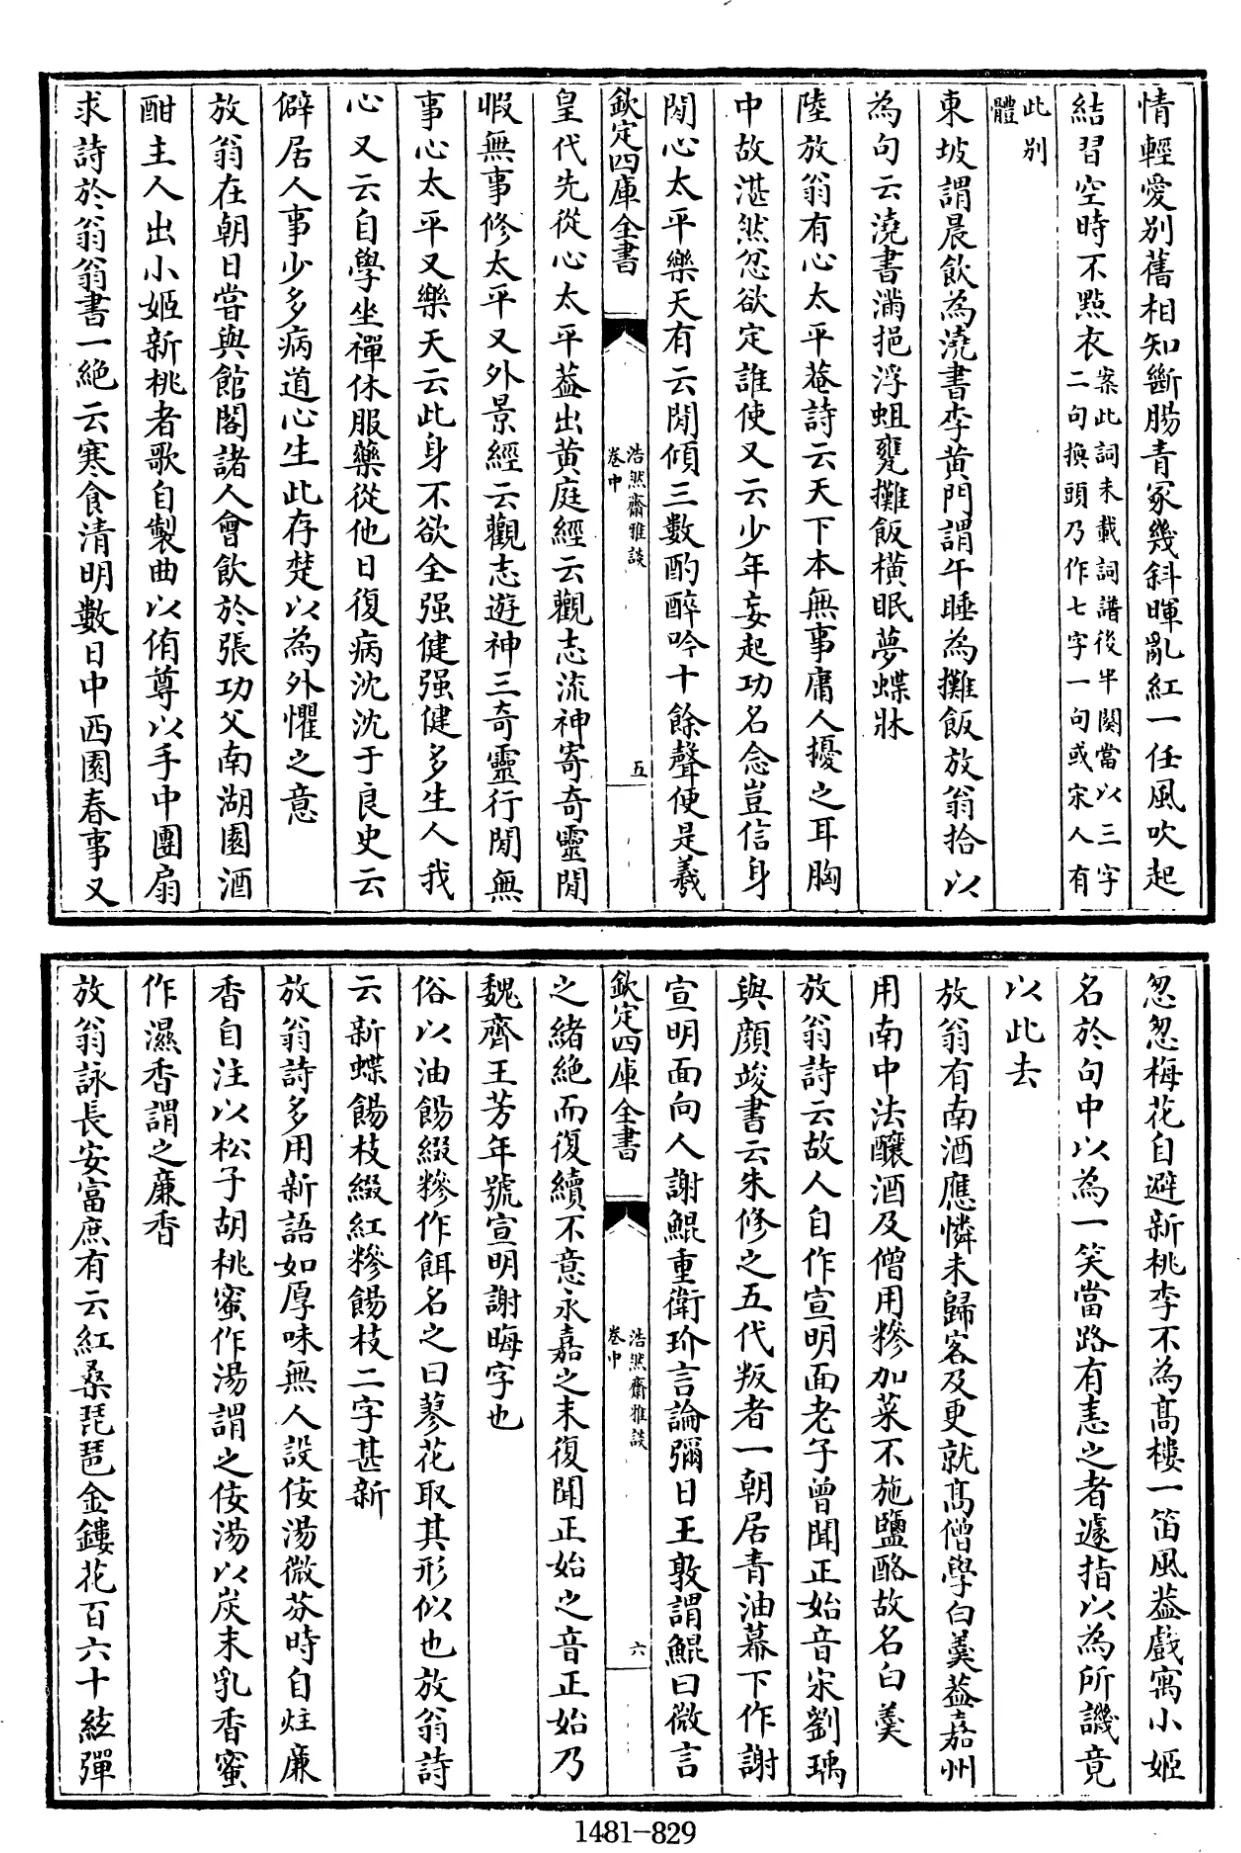 情輕愛別舊相知斷腸青冢幾斜暉亂紅一任風吹起
結習空時不點衣案此詞未載詞譜後半闋當以三字
二句換頭乃作七字一句或宋人有
此別
體
東坡謂晨飲為澆書李黃門謂午睡為攤飯放翁拾以
為句云澆書滿挹浮蛆甕攤飯橫眠夢蝶牀
陸放翁有心太平菴詩云天下本無事庸人擾之耳胸
中故湛然忿欲定誰使又云少年妄起功名念豈信身
閒心太平樂天有云閒傾三數酌醉吟十餘聲便是羲
欽定四庫全書
浩然齋雅談
卷中
五
皇代先從心太平葢出黃庭經云觀志流神寄奇靈閒
暇無事修太平又外景經云觀志遊神三奇靈行閒無
事心太平又樂天云此身不欲全强健强健多生人我
心又云自學坐禪休服藥從他日復病沈沈于良史云
僻居人事少多病道心生此存楚以為外懼之意
放翁在朝日嘗與館閣諸人會飲於張功父南湖園酒
酣主人出小姬新桃者歌自製曲以侑尊以手中團扇
求詩於翁翁書一絶云寒食清明數日中西園春事又
忽忽梅花自避新桃李不為髙樓一笛風葢戲寓小姬
名於句中以為一笑當路有恚之者遽指以為所譏竟
以此去
放翁有南酒應憐未歸客及更就髙僧學白羮葢嘉州
用南中法釀酒及僧用糝加菜不施鹽酪故名白羮
放翁詩云故人自作宣明面老子曾聞正始音宋劉瑀
與顔竣書云朱修之五代叛者一朝居青油幕下作謝
宣明面向人謝鯤重衛玠言論彌日王敦謂鯤曰微言
欽定四庫全書
浩然齋雅談
卷中
六
之緒絶而復續不意永嘉之末復聞正始之音正始乃
魏齊王芳年號宣明謝晦字也
俗以油餳綴糝作餌名之曰蓼花取其形似也放翁詩
云新蝶餳枝綴紅糝餳枝二字甚新
放翁詩多用新語如厚味無人設侒湯微芬時自炷廉
香自注以松子胡桃蜜作湯謂之侒湯以炭末乳香蜜
作濕香謂之廉香
放翁詠長安富庶有云紅桑琵琶金鏤花百六十絃彈
1481-829